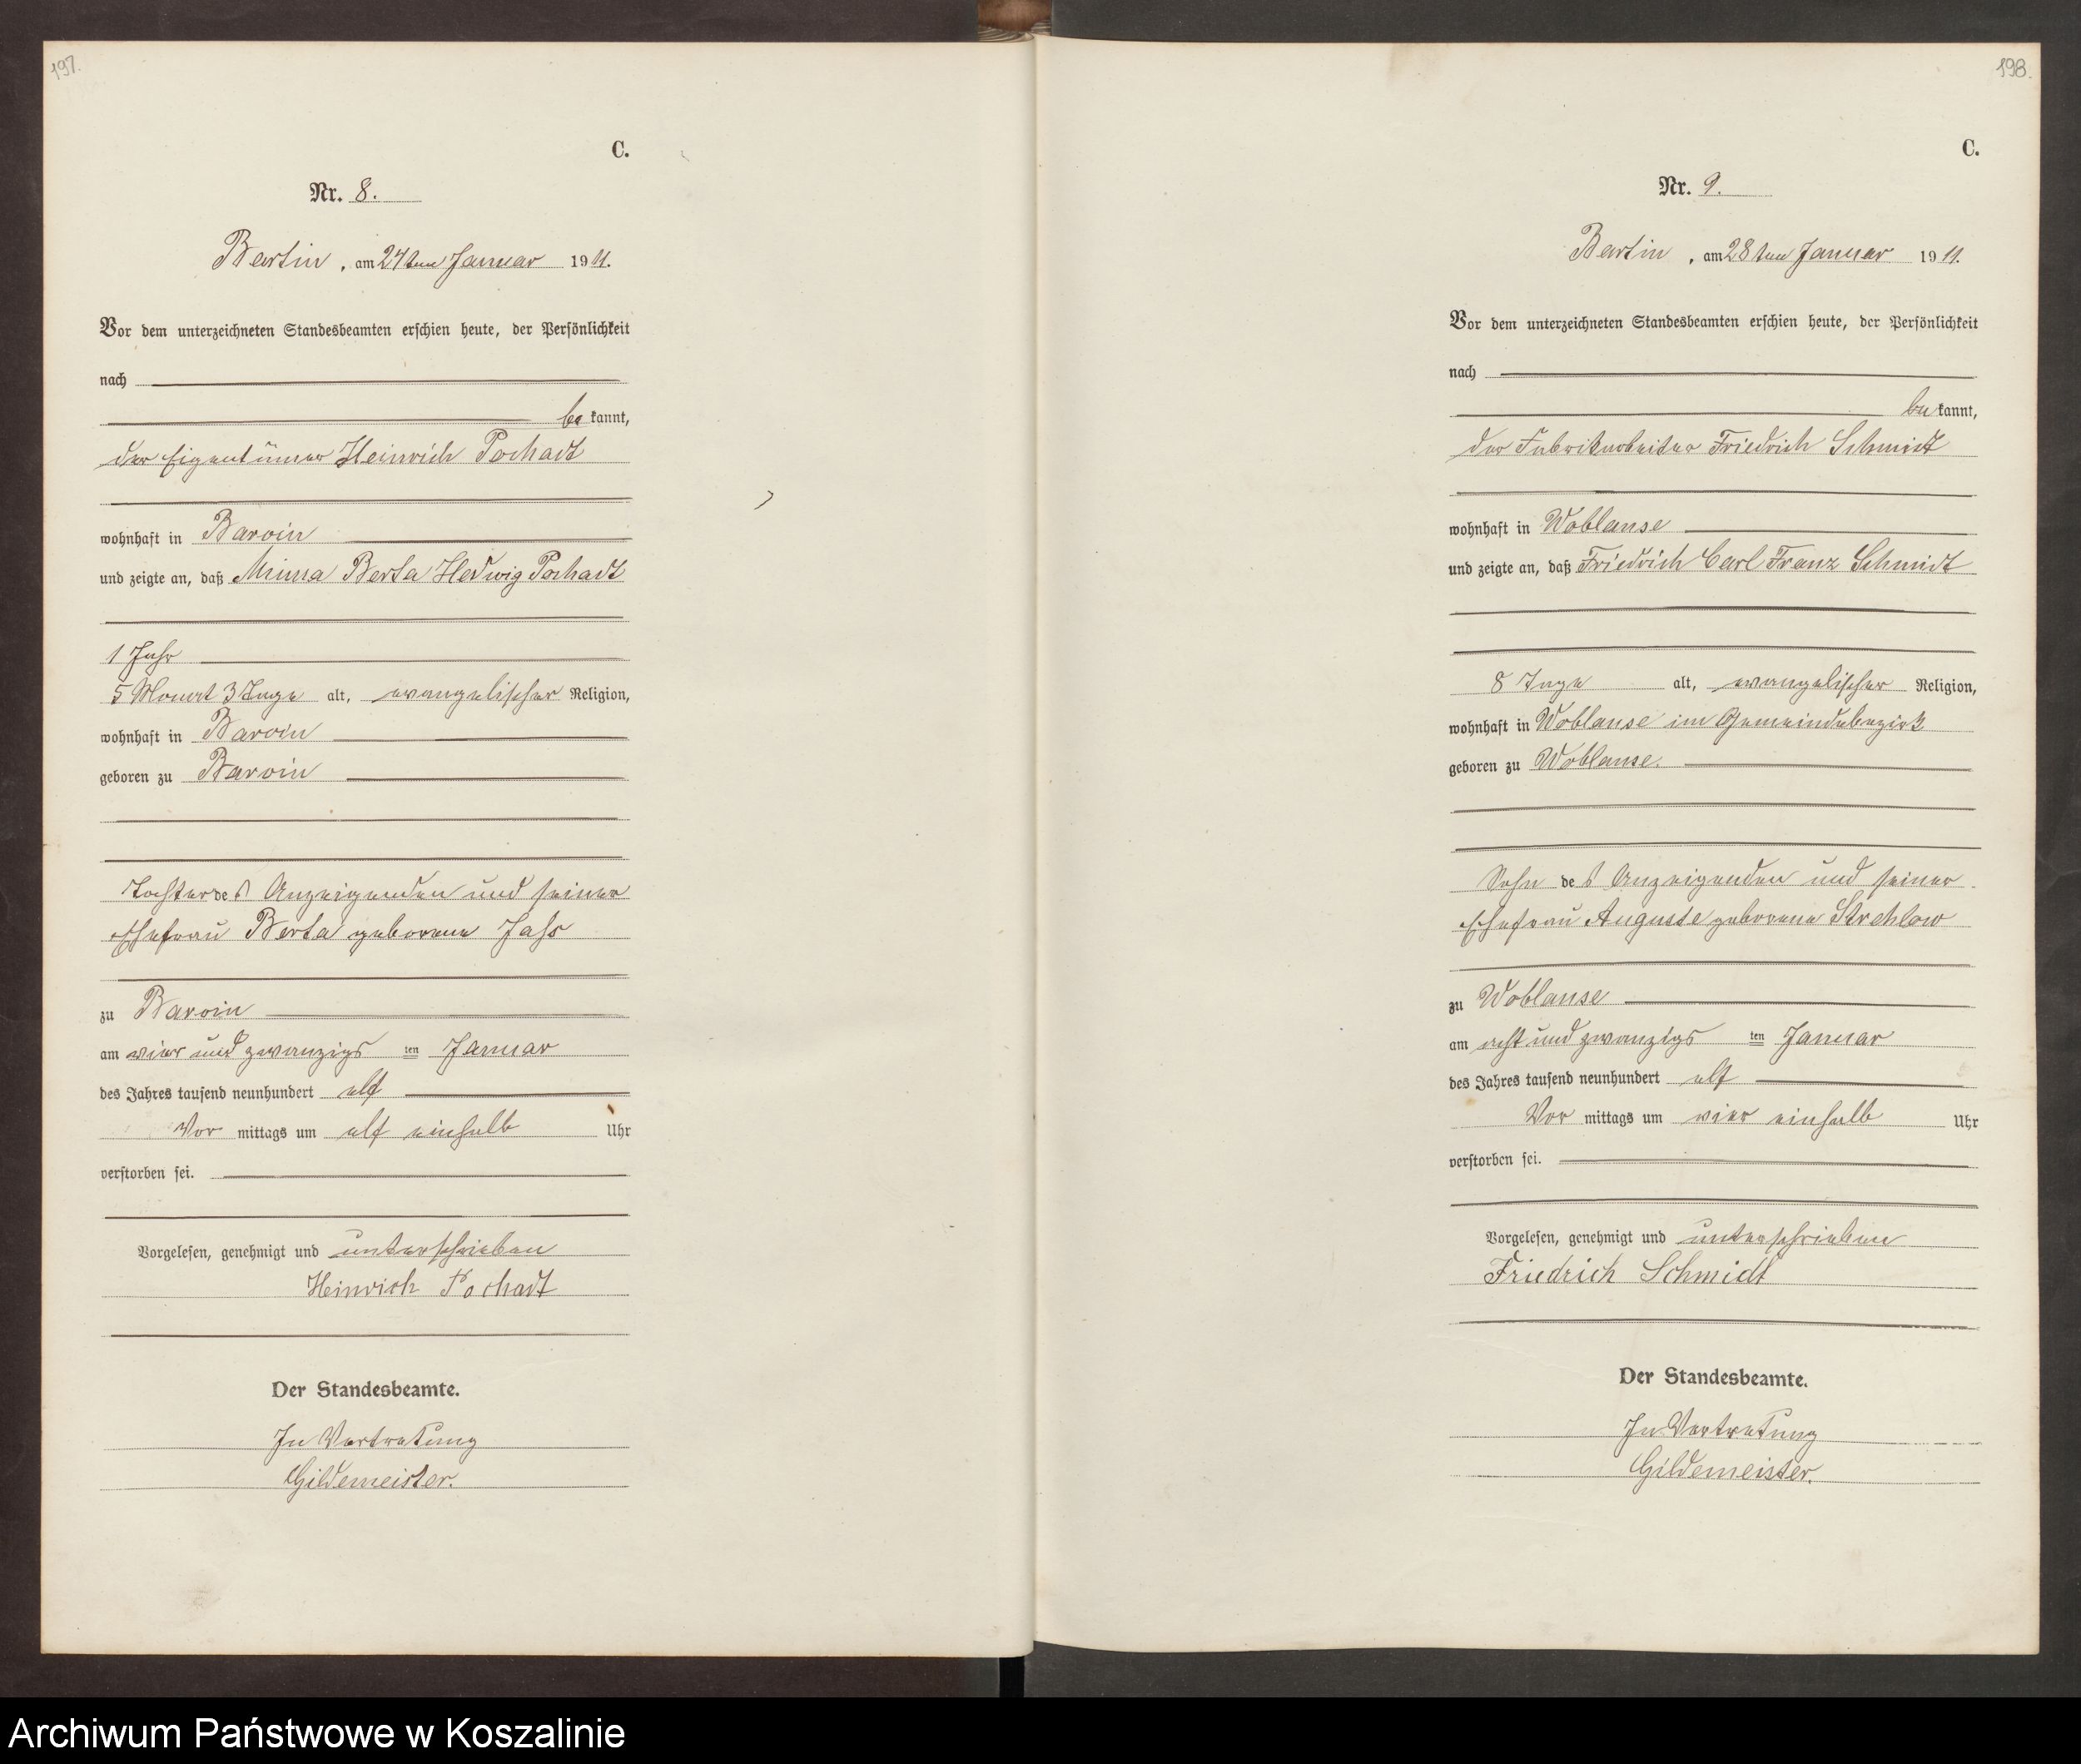 197.
C.
Nr. 8.
Bartin, am 24ten Januar 1911.
Vor dem unterzeichneten Standesbeamten erschien heute, der Persönlichkeit
nach
bekannt,
der Eigentümer Heinrich Pochadt
wohnhaft in Barvin
und zeigte an, daß Minna Berta Hedwig Pochadt
1 Jahr
5 Monat 3 Tage alt, evangelischer Religion,
wohnhaft in Barvin
geboren zu Barvin
Tochter des Anzeigenden und seiner
Ehefrau Berta geborene Jahr
zu Barvin
am vier und zwanzigsten Januar
des Jahres tausend neunhundert elf
Vormittags um elf einhalb Uhr
verstorben sei.
Vorgelesen, genehmigt und unterschrieben
Heinrich Pochadt
Der Standesbeamte.
In Vertretung
Gildemeister.
198.
C.
Nr. 9.
Bartin, am 28ten Januar 1911.
Vor dem unterzeichneten Standesbeamten erschien heute, der Persönlichkeit
nach
bekannt,
der Fabrikarbeiter Friedrich Schmidt
wohnhaft in Woblanse
und zeigte an, daß Friedrich Carl Franz Schmidt
8 Tage alt, evangelischer Religion,
wohnhaft in Woblanse im Gemeindebezirk
geboren zu Woblanse.
Sohn des Anzeigenden und seiner
Ehefrau Auguste geborene Strehlow
zu Woblanse
am acht und zwanzigsten Januar
des Jahres tausend neunhundert elf
Vormittags um vier einhalb Uhr
verstorben sei.
Vorgelesen, genehmigt und unterschrieben
Friedrich Schmidt
Der Standesbeamte.
In Vertretung
Gildemeister.
Archiwum Państwowe w Koszalinie